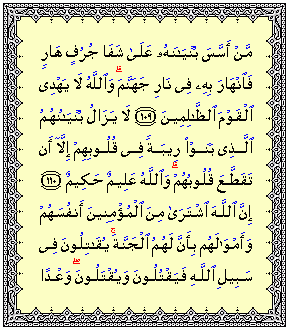 مَّنْ أَسَّسَ بُنْيَـٰنَهُۥ عَلَىٰ شَفَا جُرُفٍ هَارٍ
فَٱنْهَارَ بِهِۦ فِى نَارِ جَهَنَّمَ ۗ وَٱللَّهُ لَا يَهْدِى
ٱلْقَوْمَ ٱلظَّـٰلِمِينَ ﴿١٠٩﴾ لَا يَزَالُ بُنْيَـٰنُهُمُ
ٱلَّذِى بَنَوْا۟ رِيبَةً فِى قُلُوبِهِمْ إِلَّآ أَن
تَقَطَّعَ قُلُوبُهُمْ ۗ وَٱللَّهُ عَلِيمٌ حَكِيمٌ ﴿١١٠﴾
إِنَّ ٱللَّهَ ٱشْتَرَىٰ مِنَ ٱلْمُؤْمِنِينَ أَنفُسَهُمْ
وَأَمْوَٰلَهُم بِأَنَّ لَهُمُ ٱلْجَنَّةَ ۚ يُقَـٰتِلُونَ فِى
سَبِيلِ ٱللَّهِ فَيَقْتُلُونَ وَيُقْتَلُونَ ۖ وَعْدًا